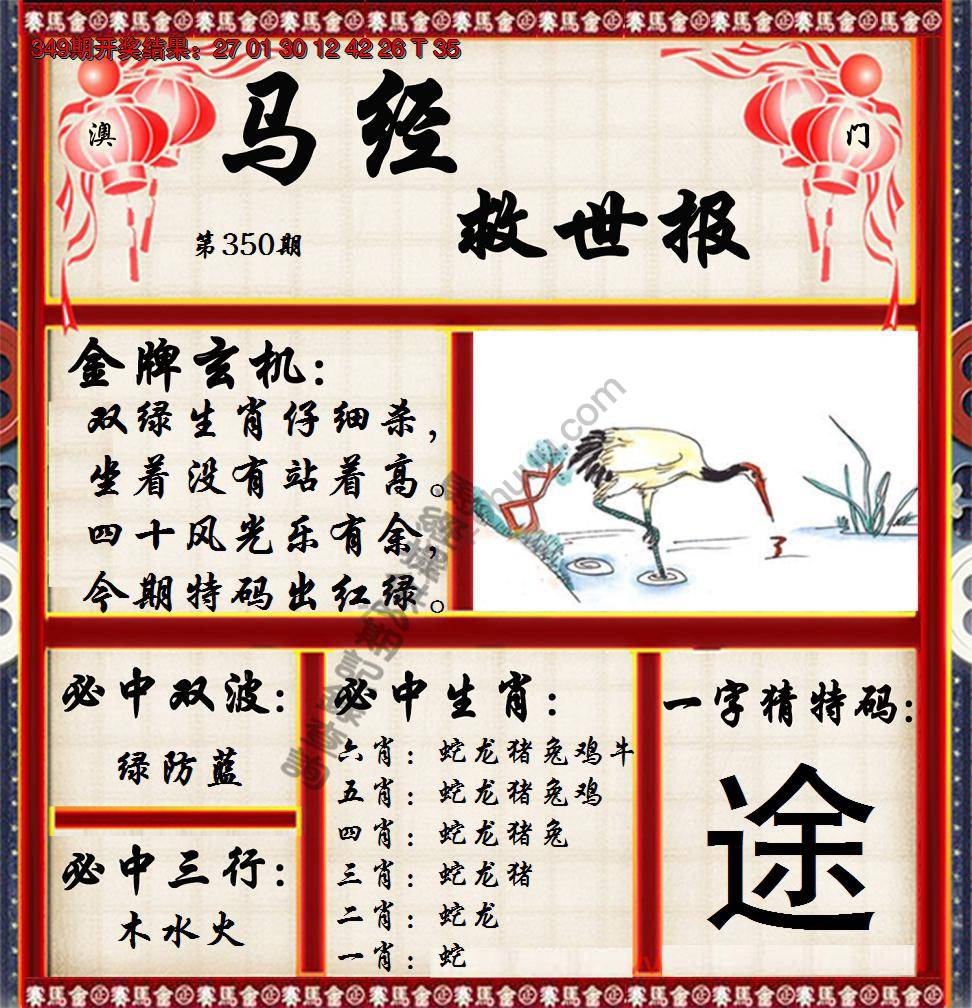 349期开奖结果：27 01 30 12 42 26 T 35
澳
门
马经
救世报
第350期
金牌玄机：
双绿生肖仔细杀，
坐着没有站着高。
四十风光乐有余，
今期特码出红绿。
3
必中双波：
绿防蓝
必中三行：
木水火
必中生肖：
六肖：蛇龙猪兔鸡牛
五肖：蛇龙猪兔鸡
四肖：蛇龙猪兔
三肖：蛇龙猪
二肖：蛇龙
一肖：蛇
一字猜特码：
途